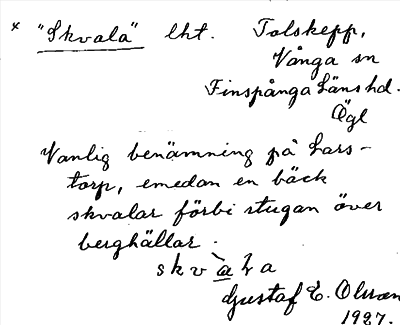 × "Skvala" lht. Tolskepp,
Vånga sn
Finspånga läns hd.
Ögl
Vanlig benämning på Lars-
torp, emedan en bäck
skvalar förbi stugan över
berghällar.
skv`a̲ła
Gustaf E. Olsson
1927.